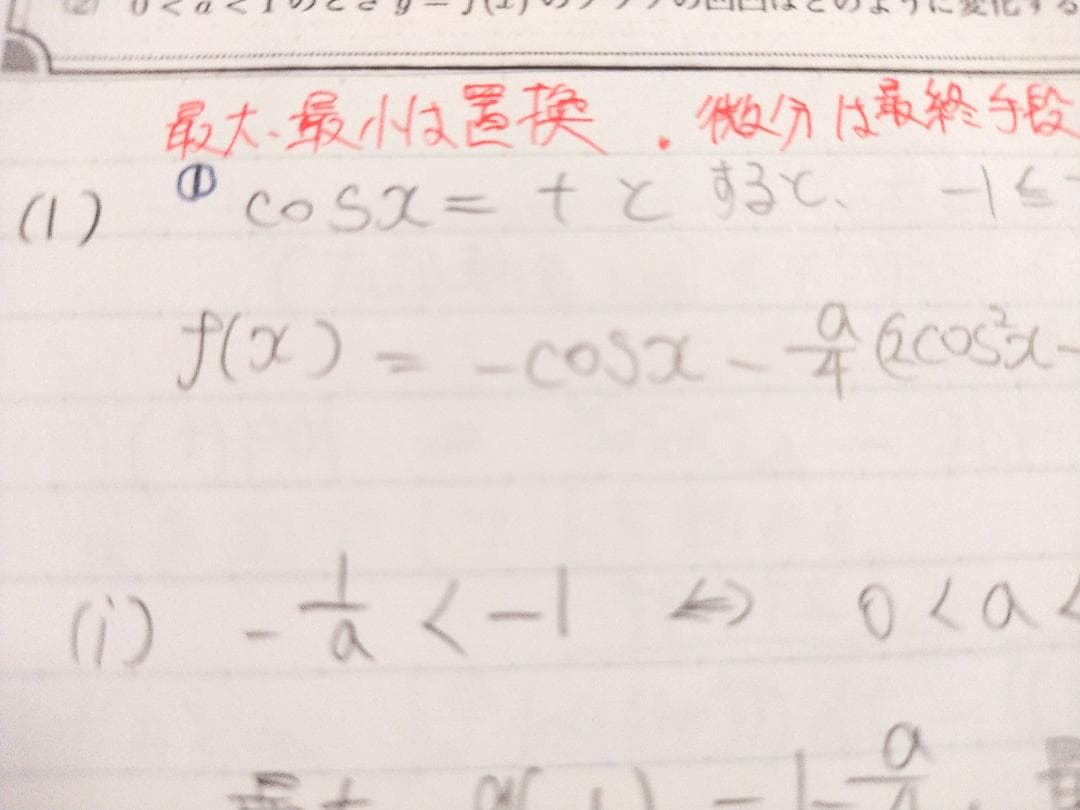 0 < a < 1 のとき y = f(x) のグラフの凹凸はどのように変化する
最大、最小は置換. 微分は最終手段
(1) ① cosx = t とすると、 -1≦
f(x) = -cosx - a/4 (2cos²x -
(i) -1/a < -1 ⇔ 0 < a <
= 1 - a/4